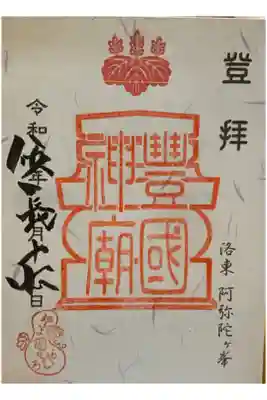 登拝
洛東 阿弥陀ヶ峯
豐國
神廟
令和 年 月十 日